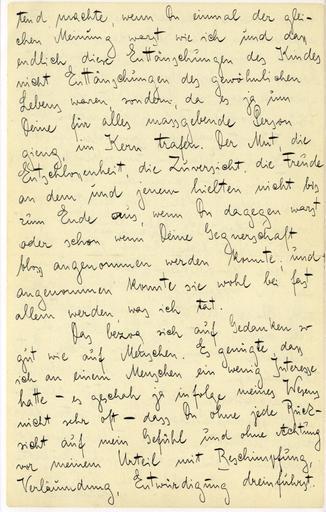 tend machte, wenn Du einmal der glei-
chen Meinung warst wie ich und dass
endlich diese Enttäuschungen des Kindes
nicht Enttäuschungen des gewöhnlichen
Lebens waren, sondern, da es ja um
Deine für alles massgebende Person
gieng, im Kern trafen. Der Mut, die
Entschlossenheit, die Zuversicht, die Freude
an dem und jenem hielten nicht bis
zum Ende aus, wenn Du dagegen warst
oder schon wenn Deine Gegnerschaft
bloss angenommen werden konnte; und
angenommen konnte sie wohl bei fast
allem werden, was ich tat.
Das bezog sich auf Gedanken so
gut wie auf Menschen. Es genügte dass
ich an einem Menschen ein wenig Interesse
hatte – es geschah ja infolge meines Wesens
nicht sehr oft – dass Du ohne jede Rück-
sicht auf mein Gefühl und ohne Achtung
vor meinem Urteil mit Beschimpfung,
Verläumdung, Entwürdigung dreinfuhrst.